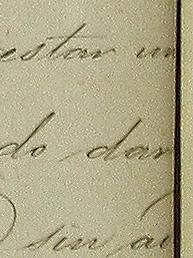 estar un
do dan
sin a